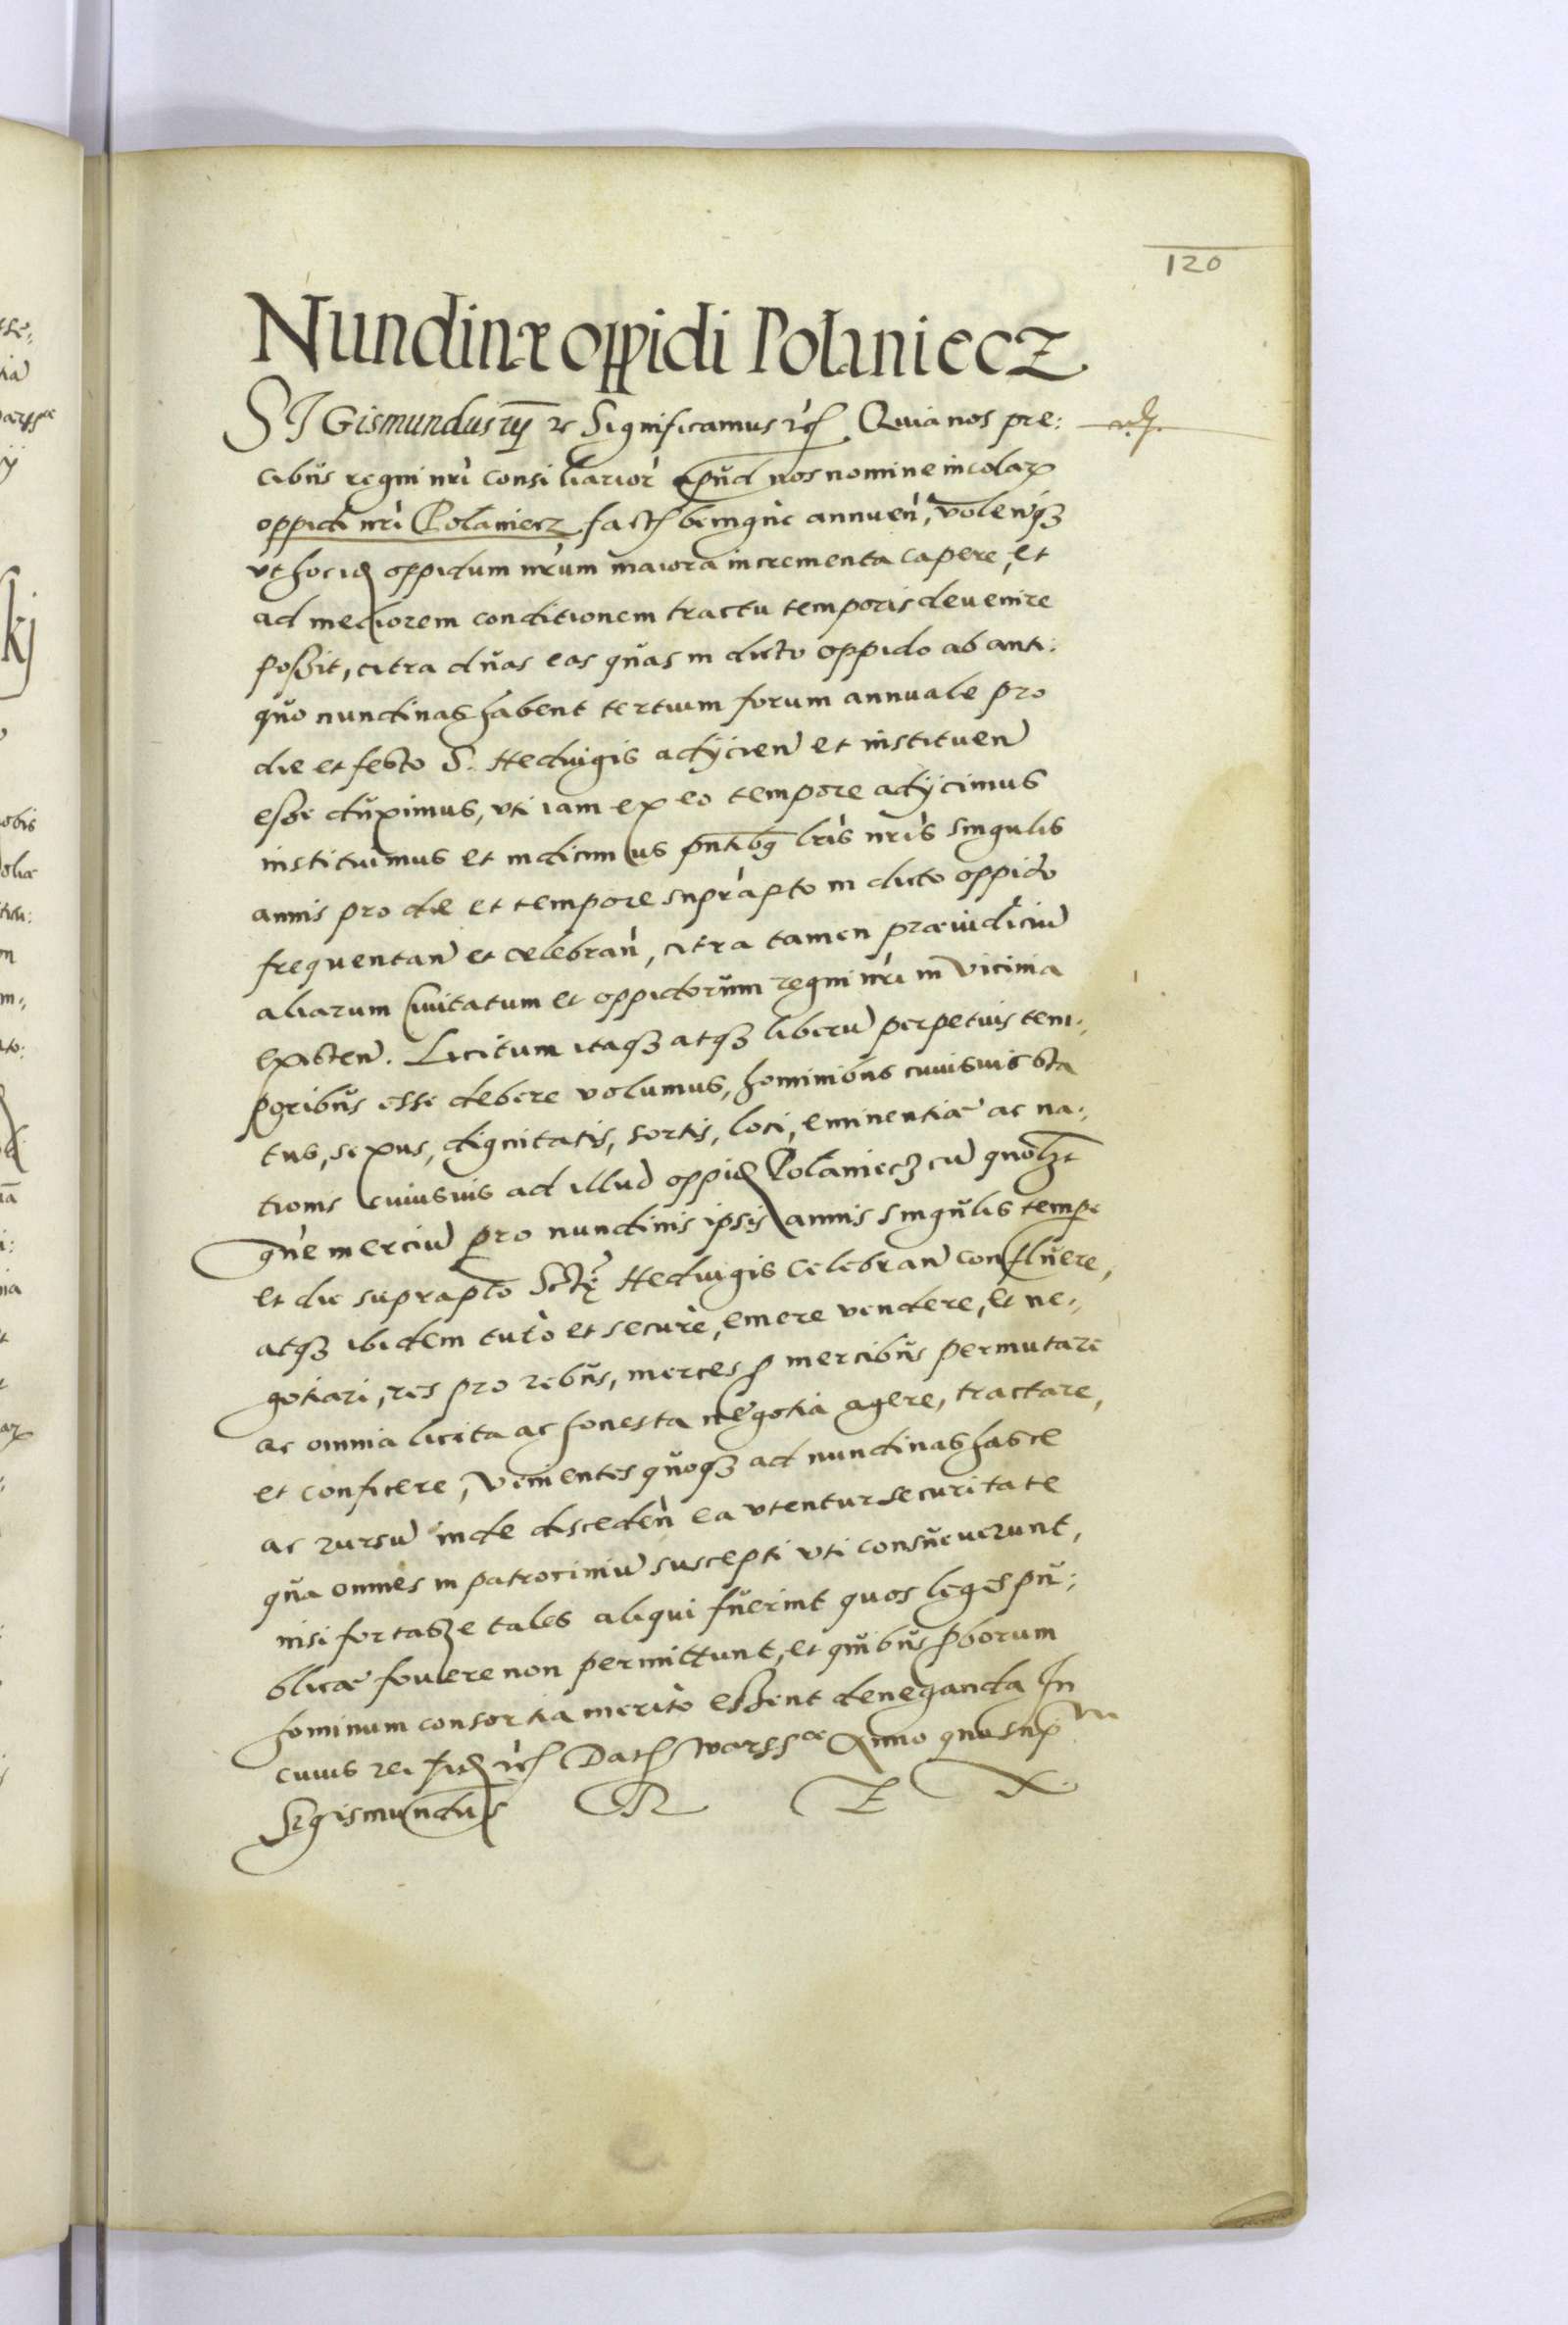 120
Nundinæ oppidi Polaniecz
SIGismundus iij etc Significamus etc Quia nos pre:
cibus regni nri consiliarior apud nos nomine incolar
oppidi nri Polaniecz fact benigne annuen, volenqz
vt hoc id oppidum nrum maiora incrementa capere, et
ad meliorem conditionem tractu temporis deuenire
poßit, citra duas eas quas in dicto oppido ab anti:
quo nundinas habent tertium forum annuale pro
die et festo S. Heduigis adijcien et instituen
eße duximus, vti iam ex eo tempore adijcimus
instituimus et indicimus pntibg lris nris singulis
annis pro die et tempore suprapto in dicto oppido
frequentan et celebran, citra tamen præiudiciu
aliarum Ciuitatum et oppidorum regni nri in vicinia
existen. Licitum itaqz atqz liberu perpetuis tem:
poribus esse debere volumus, hominibus cuiusuis sta
tus, sexus, dignitatis, sortis, loci, eminentiæ ac na:
tionis cuiusuis ad illud oppid Polaniecz cu quolzt
gne merciu pro nundinis ipsis annis singulis tempe
et die suprapto Sctę Heduigis Celebran confluere,
atqz ibidem tuto et secure, emere vendere, et ne:
gotiari, res pro rebus, merces p mercibus permutare
ac omnia licita ac honesta negotia agere, tractare,
et conficere, Venientes quoqz ad nundinas hasce
ac rursu inde disceden ea vtentur securitate
qua omnes in patrociniu suscepti vti consueuerunt,
nisi fortasze tales aliqui fuerint quos leges pu:
blicæ fouere non permittunt, et quibus pborum
hominum consortia merito eßent deneganda In
cuius rei fid etc Dat Warssæ Anno quo sup
Sigismundus R E X